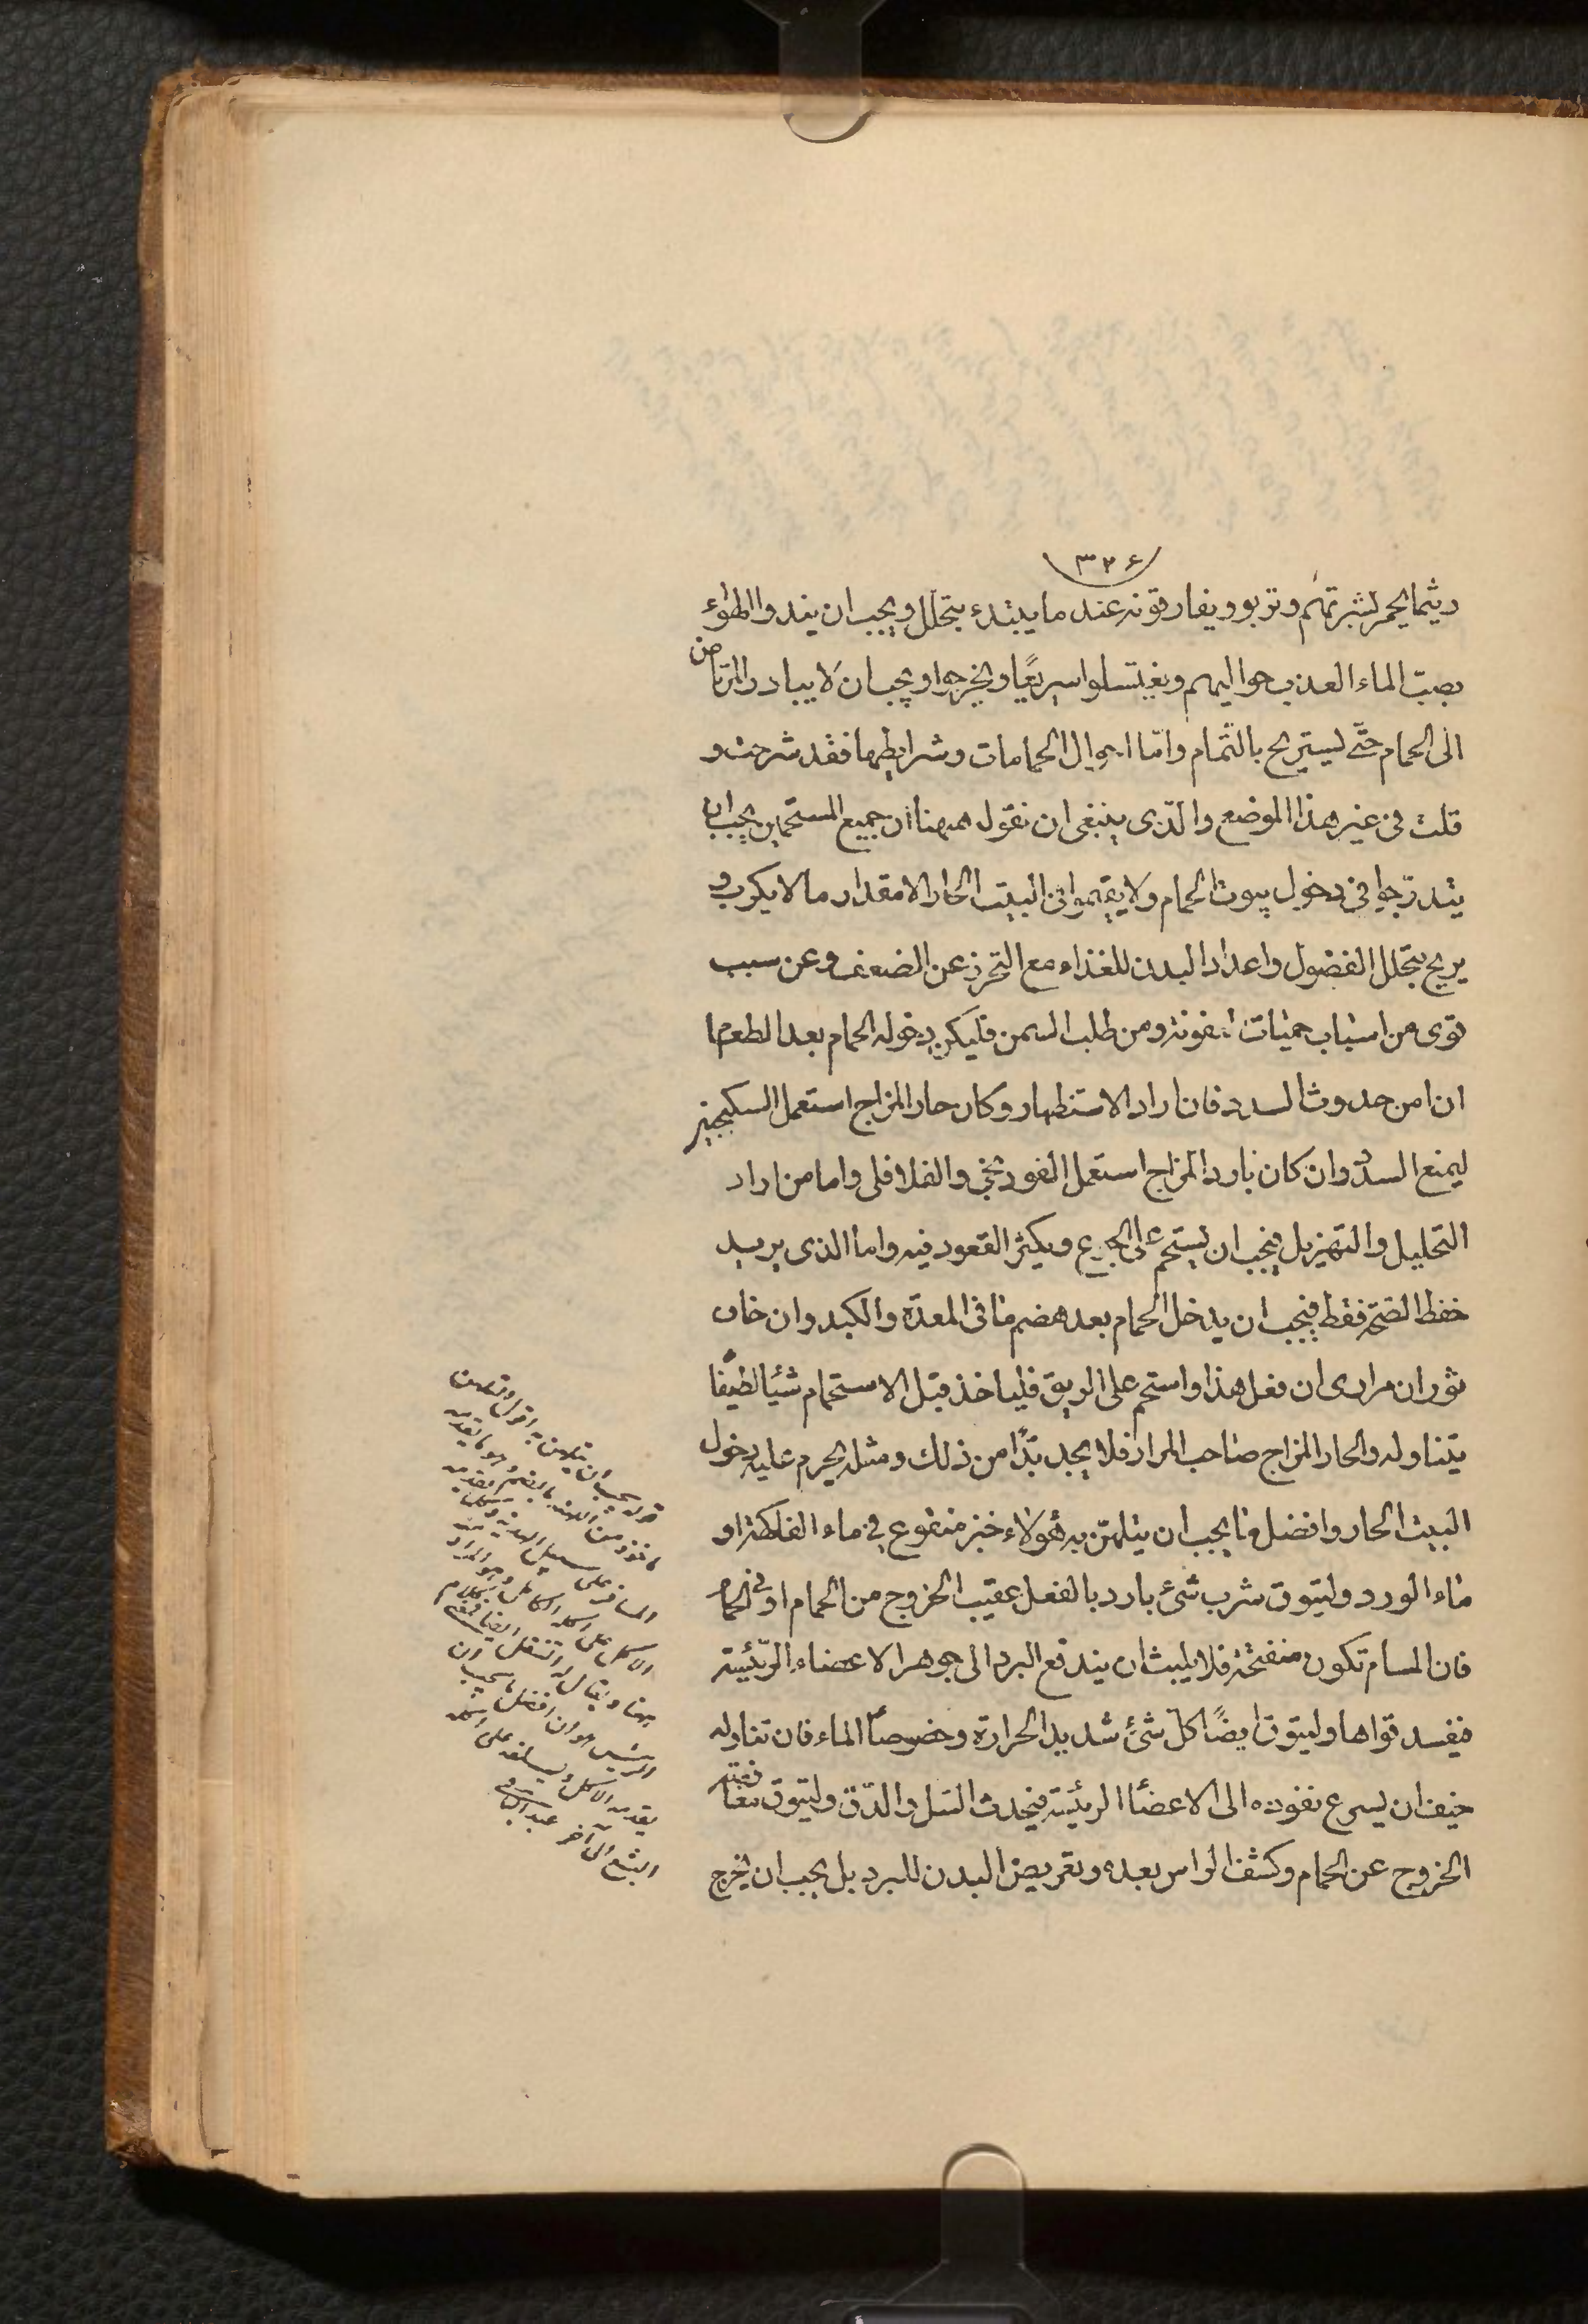 ٣٢٤
ريثما يحمر لبشرتهم وتربو ويفارقونه عند ما يبتدء يتحلل ويجب ان يندوا الهواء
بصبّ الماء العذب حواليهم ويغتسلوا سريعًا ويخرجوا ويجب ان لا يبادر المرتاض
الى الحمام حتّى يستريح بالتّمام وامّا احوال الحمامات وشرايطها فقد شرحت و
قلت فى غير هذا الموضع والّذى ينبغى ان نقول ههنا ان جميع المستحمين يجب ان
يتدرّجوا فى دخول بيوت الحمام ولا يقيموا فى البيت الحار الا مقدار ما لا يكرب و
يريح بتحلل الفضول واعداد البدن للغذاء مع التحرز عن الضعف وعن سبب
قوى من اسباب حميات العفونة ومن طلب السمن فليكن دخوله الحمام بعد الطعام
ان امن حدوث السدد فان اراد الاستظهار وكان حار المزاج استعمل السكنجبين
ليمنع السدد وان كان بارد المزاج استعمل الفوذنجى والفلافلى واما من اراد
التحليل والتهزيل فيجب ان يستحم على الجوع ويكثر القعود فيه واما الذى يريد
حفظ الصحّة فقط فيجب ان يدخل الحمام بعد هضم ما فى المعدة والكبد وان خاف
ثوران مرارى ان فعل هذا واستحم على الريق فلياخذ قبل الاستحمام شيًا لطيفًا
يتناوله والحار المزاج صاحب المرار فلا يجد بدًّا من ذلك ومثله يحرم عليه دخول
البيت الحار وافضل ما يجب ان يتلهّن به هؤلاء خبز منقوع فى ماء الفاكهة او
ماء الورد وليتوق شرب شئ بارد بالفعل عقيب الخروج من الحمام او فى الحمام
فان المسام تكون منفتحة فلا يلبث ان يندفع البرد الى جوهر الاعضاء الرّئيسة
فيفسد قواها وليتوق ايضًا كلّ شئ شديد الحرارة وخصوصًا الماء فان تناوله
خيف ان يسرع نفوذه الى الاعضاء الرئيسة فيحدث السّل والدّق وليتوق معافصة
الخروج عن الحمام وكشف الراس بعده وتعريض البدن للبرد بل يجب ان يخرج
قوله يجب ان يتلهن به اقول
ماخوذ من اللهنة بالضم وهو ما يقدمه